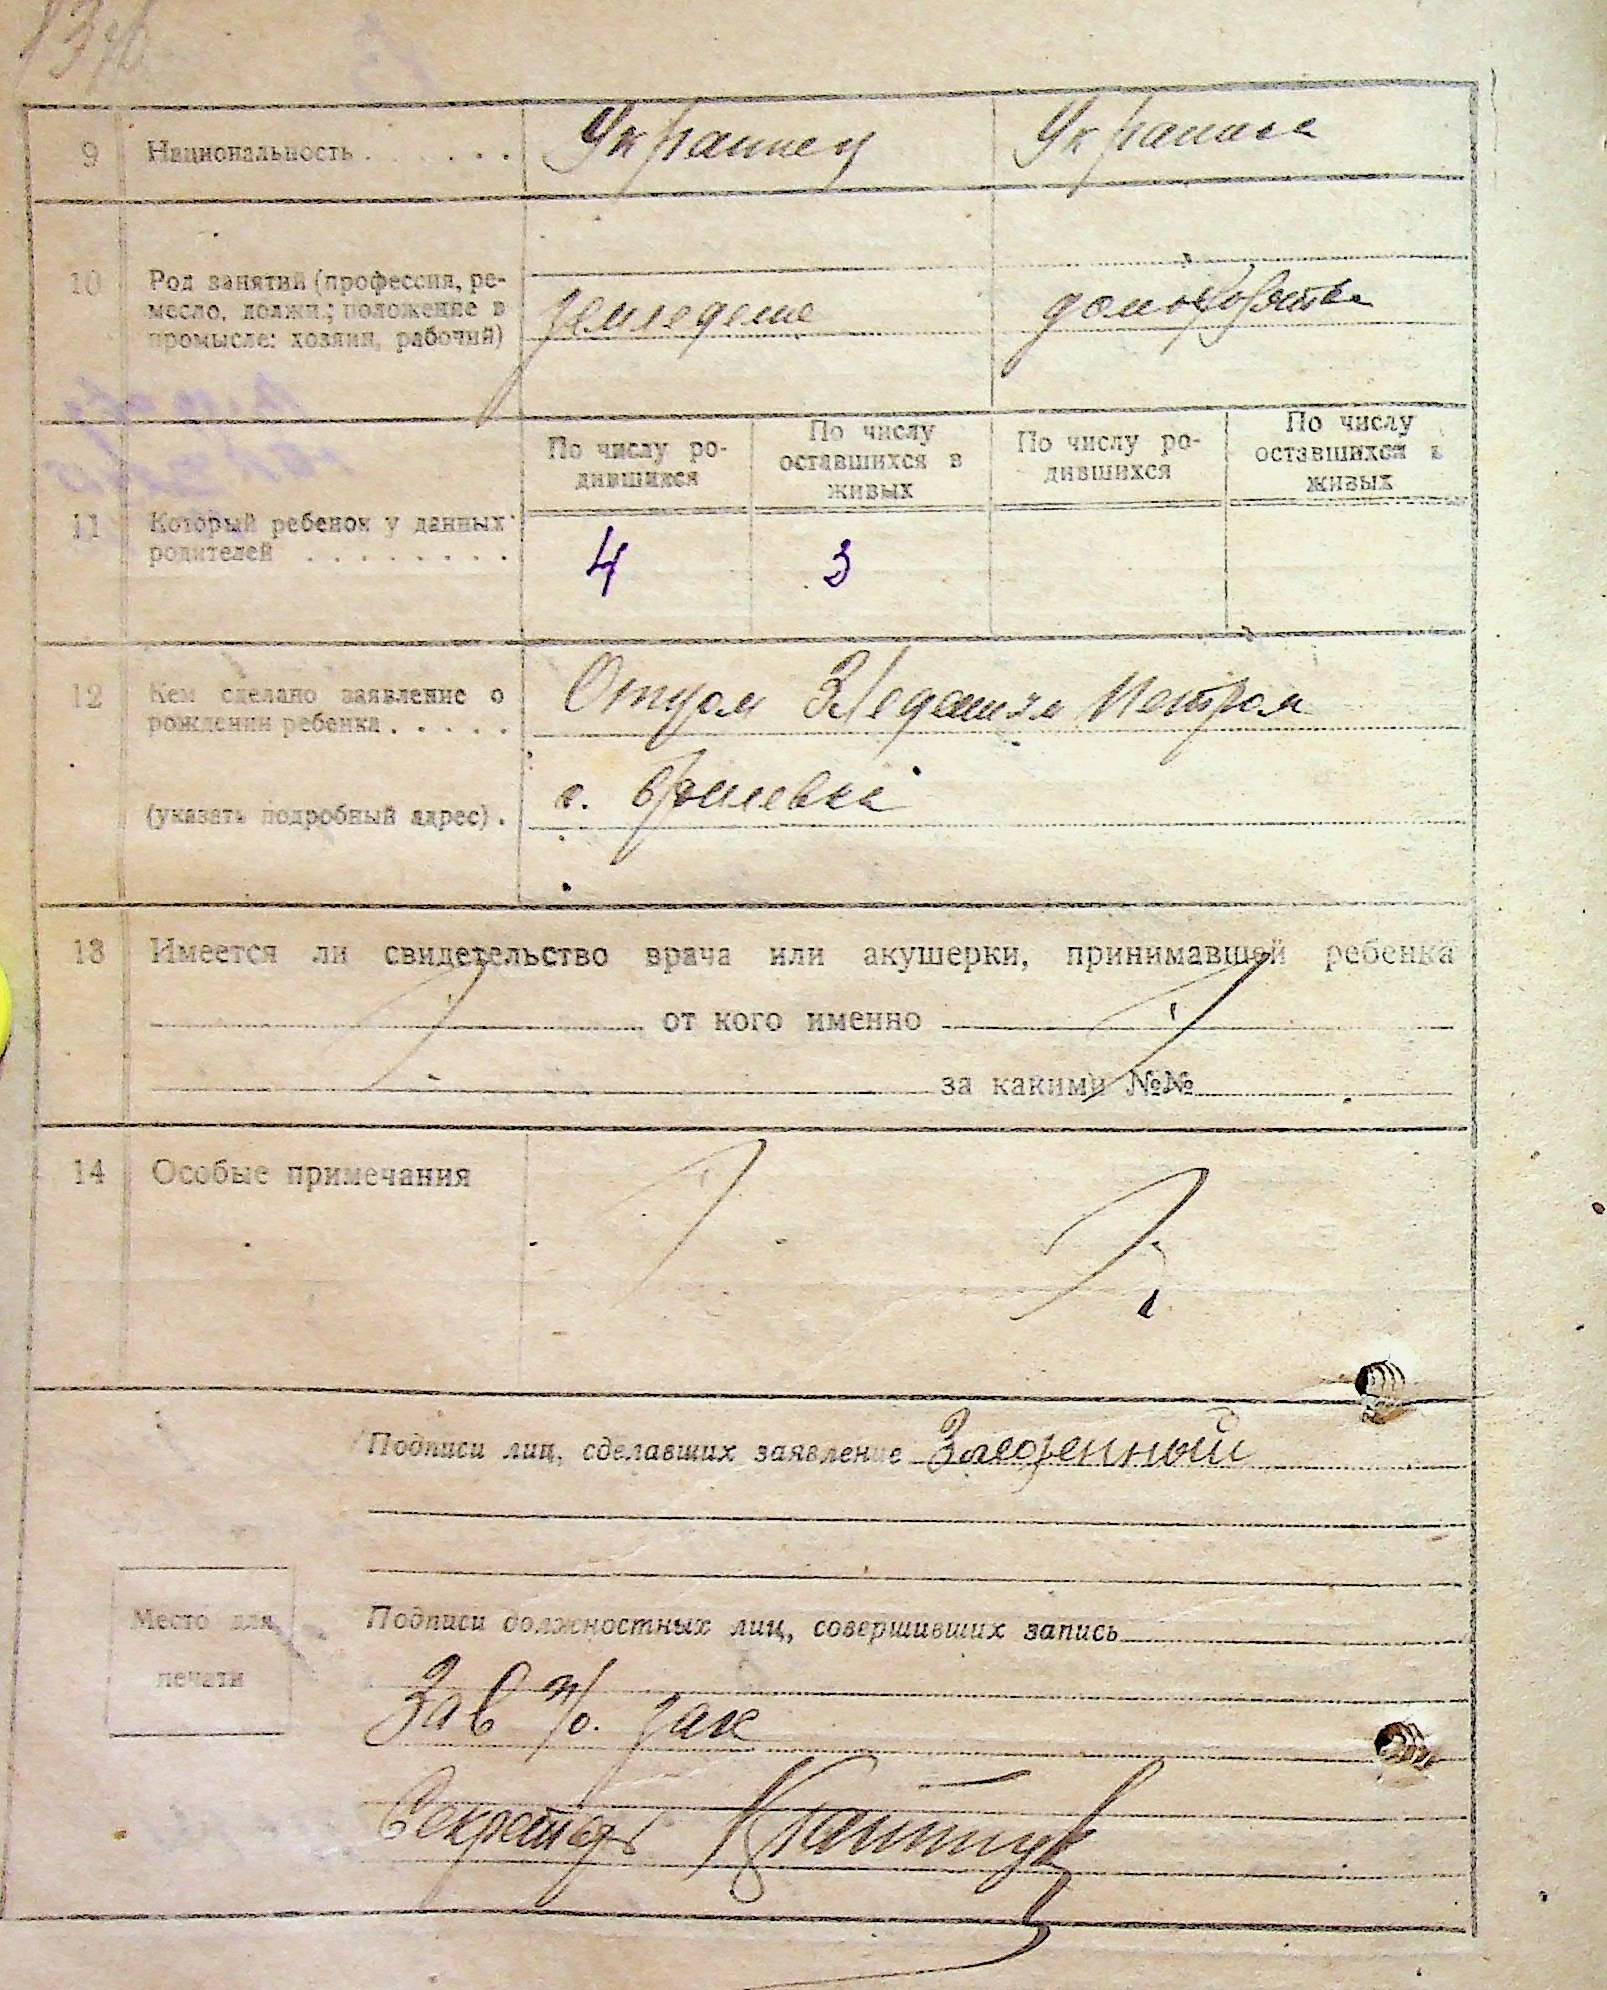 9 Национальность . . . . . . Украинец Украинка
10 Род занятий (профессия, ре-
месло, должн.; положение в
промысле: хозяин, рабочий)
земледелие домохозяйка
По числу ро-
дившихся
По числу
оставшихся в
живых
По числу ро-
дившихся
По числу
оставшихся в
живых
11 Который ребенок у данных
родителей . . . . . . . .
4 3
12 Кем сделано заявление о
рождении ребенка . . . . .
Отцом Петром
(указать подробный адрес) .
с.
13 Имеется ли свидетельство врача или акушерки, принимавшей ребенка
от кого именно
за какими №№
14 Особые примечания
Подписи лиц, сделавших заявление
Место для
печати
Подписи должностных лиц, совершивших запись
Зав
Секретарь